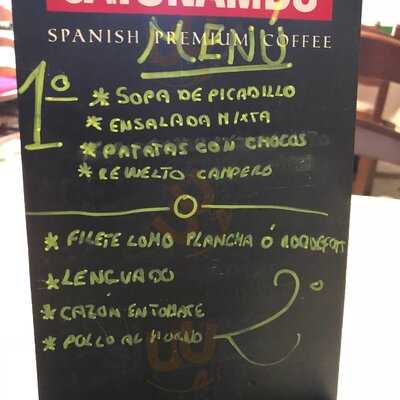 CATUNAMBÚ
SPANISH PREMIUM COFFEE
MENÚ
1º
* SOPA DE PICADILLO
* ENSALADA MIXTA
* PATATAS CON CHOCOS
* REVUELTO CAMPERO
2º
* FILETE LOMO PLANCHA Ó ROQUEFORT
* LENGUADO
* CAZON EN TOMATE
* POLLO AL HORNO